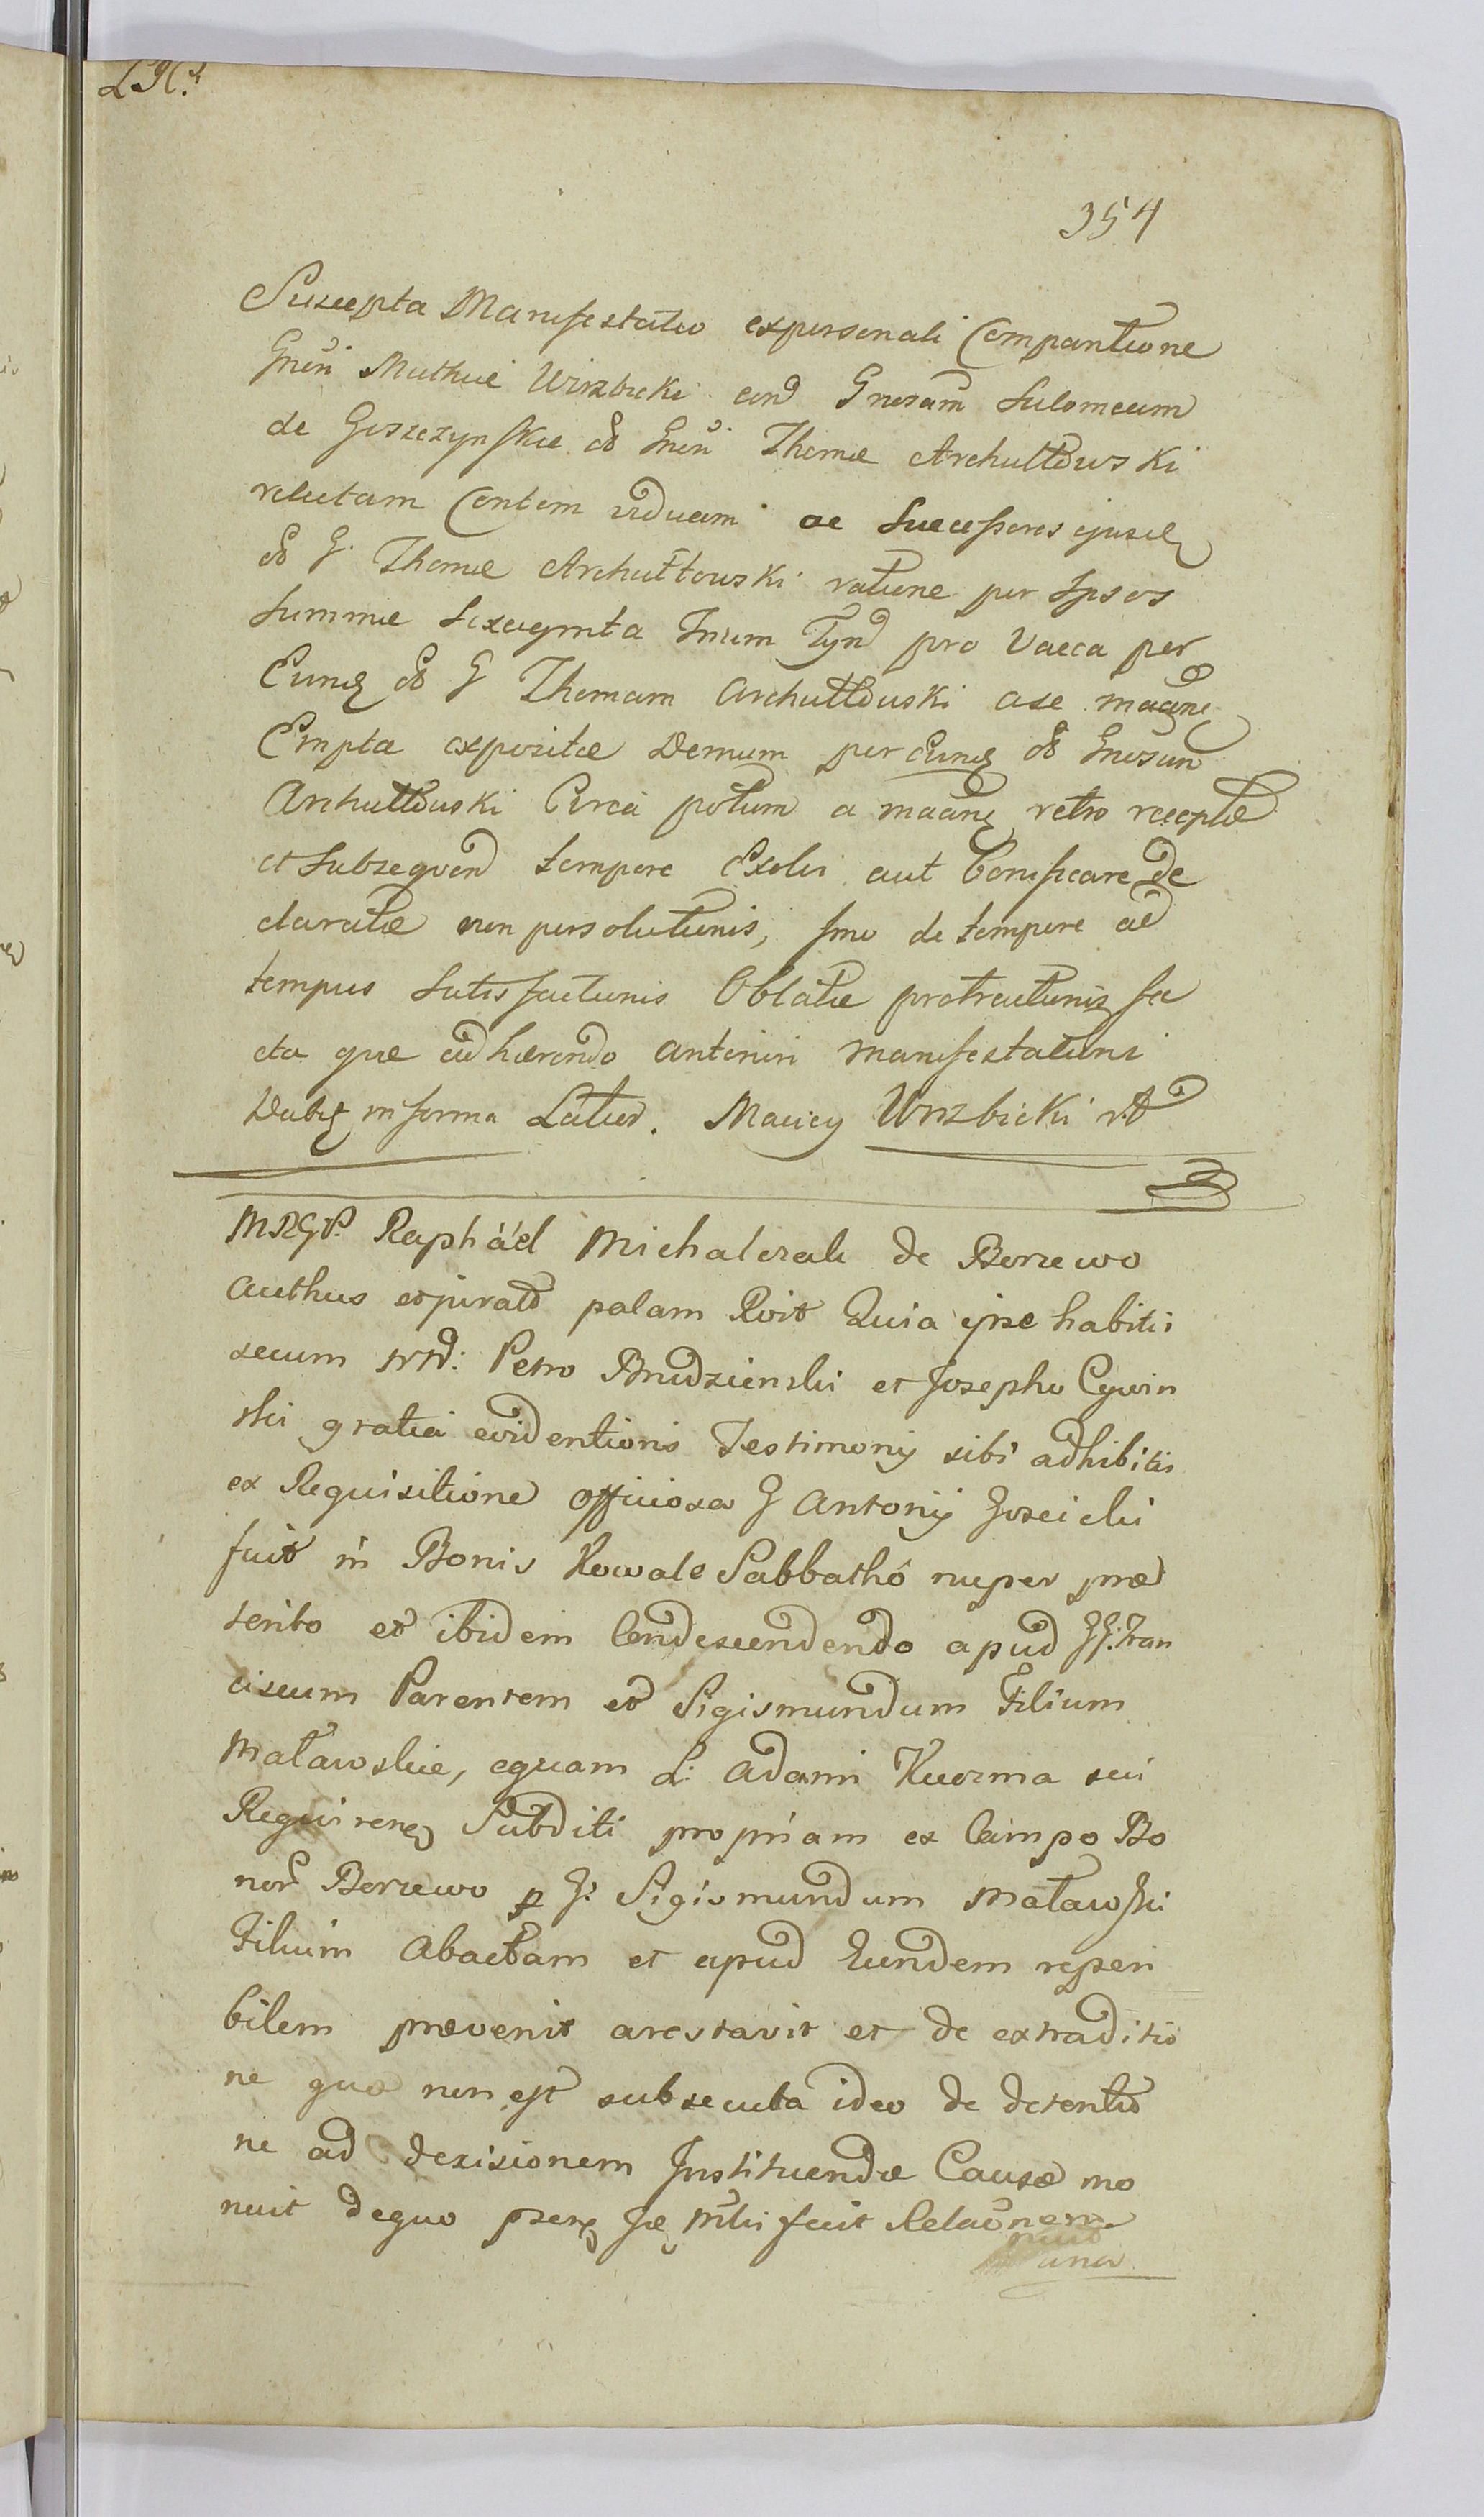 354
Suscepta Manifestatio ex personali Comparitione
Gnēri Mathiæ Wirzbicki cod Gnosam Salomeam
de Goszczynskie ol Gnēri Thomæ Archuttowski
relictam Contem viduam ac Successores ejusdē
ol G. Thomæ Archuttowski ratione per Ipsos
Summæ Sexaginta Trium Tyn pro Vacca per
Eundē ol G Thomam Archuttowski a se mañe
Empta expositæ Demum per Eundē ol Gnosum
Archuttowski Circa potum a mañe retro receptæ
et Subsequend tempore Exolvi aut Bonificare de
claratæ non persolutionis, Imo de tempore ad
tempus Satisfactionis Oblatæ protractionis fa
cta quæ adhærendo anteriori manifestationi
Debit in forma Latior. Maciey Wirzbicki
MRGP. Raphäel Michalczak de Borzewo
Authus expirato palam Rvit Quia ipse habitis
secum Petro Brudzienski et Josepho Cywin
ski gratia evidentioris Testimonij sibi adhibitis
ex Requisitione officiosa G Antonij Joscicki
fuit in Bonis Kowale Sabbathô nuper præ
terito et ibidem Condescendendo apud GG. Fran
ciscum Parentem et Sigismundum Filium
Matawskie, equam L: Adami Kuczma sui
Requirenē Subditi propriam ex Campo Bo
nor̄ Borzewo p G: Sigismundum Matawski
Filium Abactam et apud Eundem reperi
bilem prævenit arestavit et de extraditio
ne quæ non est subsecuta ideo de detentio
ne ad decisionem Instituendæ Causæ mo
nuit de quo præse Mthi fecit Relaōnem